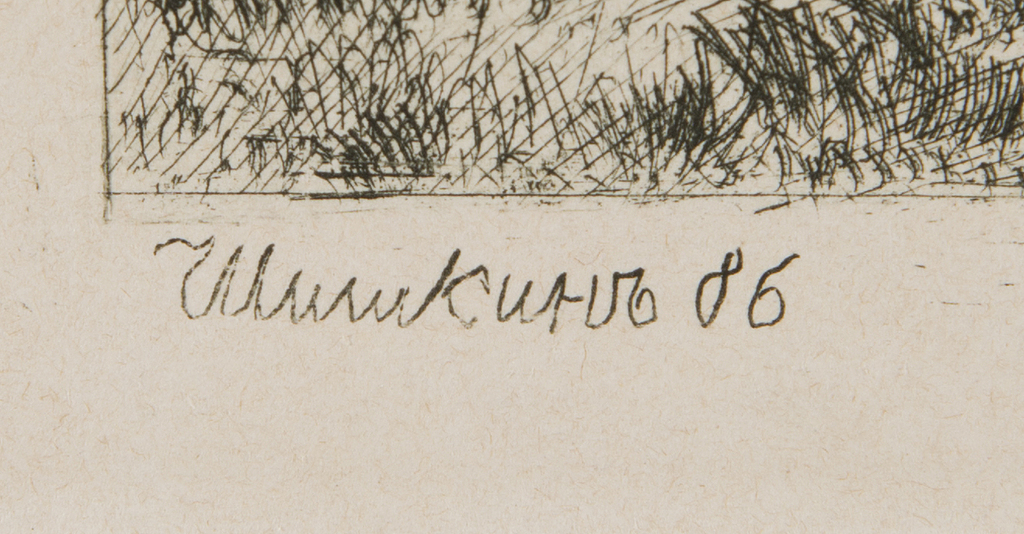 Шишкинъ 86